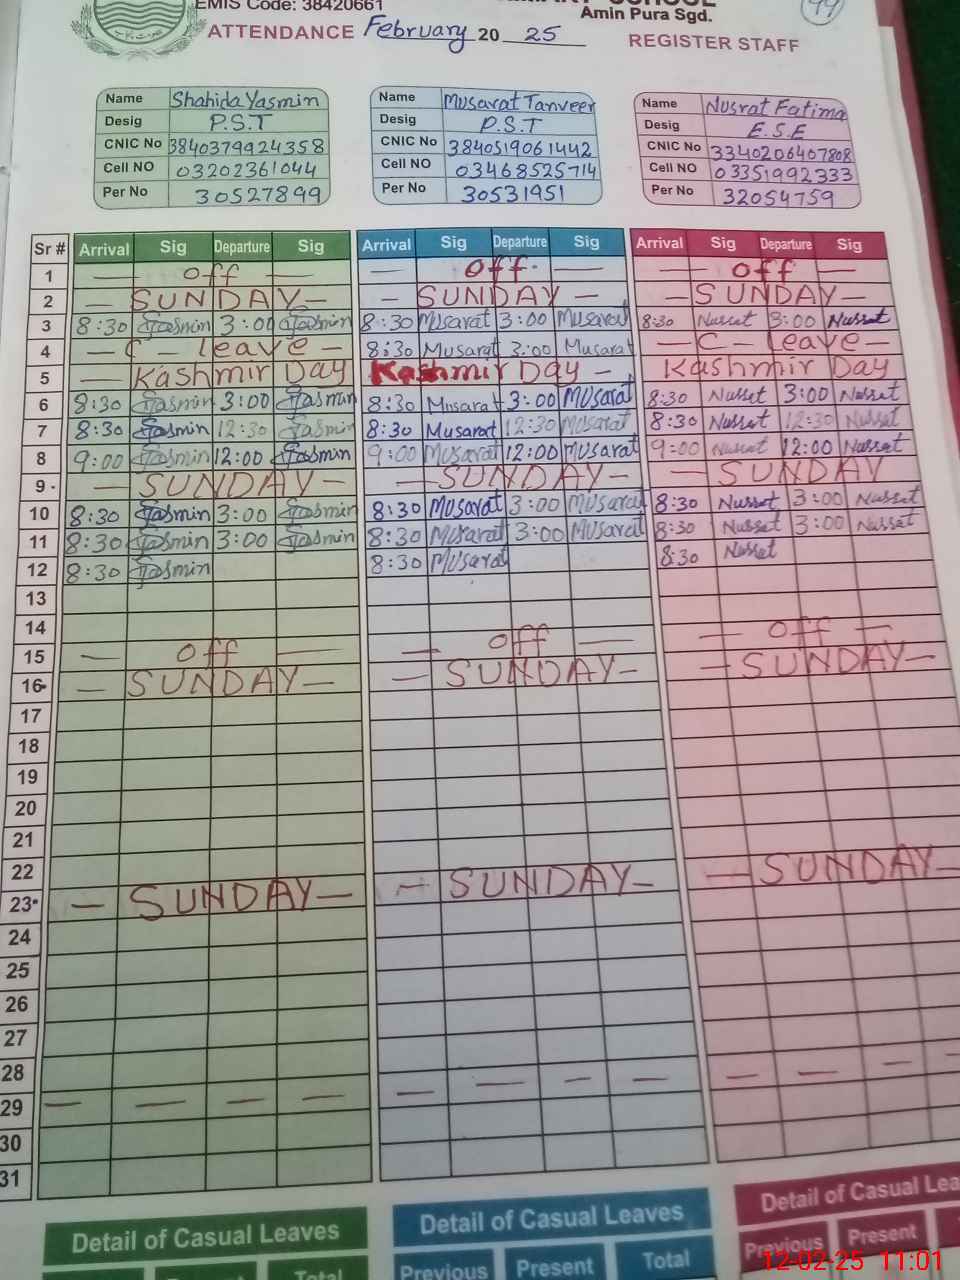 EMIS Code: 38420661
Amin Pura Sgd.
44
ATTENDANCE February 20 25 REGISTER STAFF
Name Shahida Yasmin Name Musarat Tanveer Name Nusrat Fatima
Desig P.S.T Desig P.S.T Desig E.S.E
CNIC No 3840379924358 CNIC No 3840519061442 CNIC No 3340206407808
Cell NO 03202361044 Cell NO 03468525714 Cell NO 03351992333
Per No 30527899 Per No 30531951 Per No 32054759
Sr # Arrival Sig Departure Sig Arrival Sig Departure Sig Arrival Sig Departure Sig
1 — off — — off. — — off —
2 — SUNDAY — - SUNDAY — — SUNDAY —
3 8:30 Yasmin 3:00 Yasmin 8:30 Musarat 3:00 Musarat 8:30 Nusrat 3:00 Nusrat
4 — C — leave — 8:30 Musarat 3:00 Musarat — C — leave —
5 — Kashmir Day Kashmir Day — Kashmir Day
6 8:30 Yasmin 3:00 Yasmin 8:30 Musarat 3:00 Musarat 8:30 Nusrat 3:00 Nusrat
7 8:30 Yasmin 12:30 Yasmin 8:30 Musarat 12:30 Musarat 8:30 Nusrat 12:30 Nusrat
8 9:00 Yasmin 12:00 Yasmin 9:00 Musarat 12:00 Musarat 9:00 Nusrat 12:00 Nusrat
9 — SUNDAY — — SUNDAY — — SUNDAY
10 8:30 Yasmin 3:00 Yasmin 8:30 Musarat 3:00 Musarat 8:30 Nusrat 3:00 Nusrat
11 8:30 Yasmin 3:00 Yasmin 8:30 Musarat 3:00 Musarat 8:30 Nusrat 3:00 Nusrat
12 8:30 Yasmin 8:30 Musarat 8:30 Nusrat
13
14
15 — off — — off — — off —
16 — SUNDAY — — SUNDAY — — SUNDAY —
17
18
19
20
21
22
23 — SUNDAY — — SUNDAY — — SUNDAY —
24
25
26
27
28
29 — — — — — — — — — — — —
30
31
Detail of Casual Leaves Detail of Casual Leaves Detail of Casual Lea
Total Previous Present Total Previous Present
12-02-25 11:01